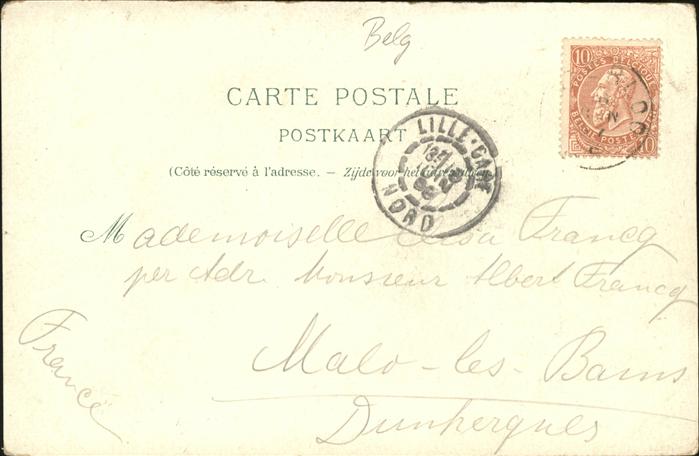 Belg
10 10
POSTES BELGIQUE
BELGIE POSTERIJEN
CARTE POSTALE
POSTKAART
LILLE-GARE
NORD
(Côté réservé à l'adresse. — Zijde voor het
Mademoiselle Francq
per Adr. Monsieur Albert Francq
Malo-les-Bains
Dunkerques
France